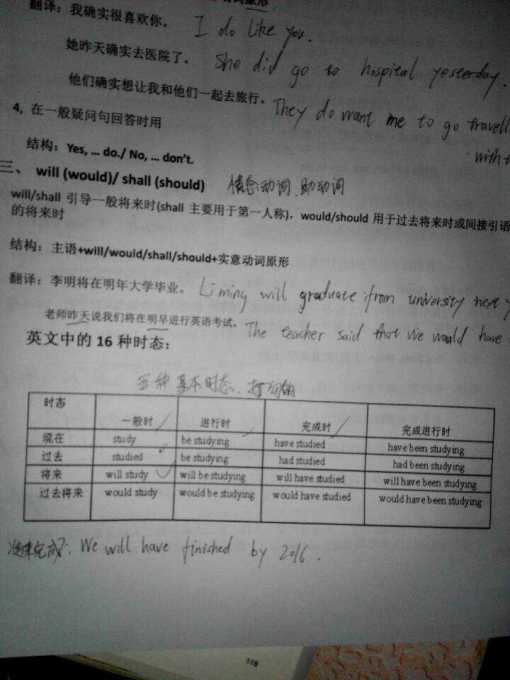 翻译：我确实很喜欢你。 I do like you.
她昨天确实去医院了。 She did go to hospital yesterday.
他们确实想让我和他们一起去旅行。 They do want me to go travell
with
4，在一般疑问句回答时用
结构：Yes, ... do./ No, ... don't.
三、 will (would)/ shall (should) 情态动词、助动词
will/shall 引导一般将来时(shall 主要用于第一人称)，would/should 用于过去将来时或间接引语
的将来时
结构：主语+will/would/shall/should+实意动词原形
翻译：李明将在明年大学毕业。 Li ming will graduate from university next y
老师昨天说我们将在明早进行英语考试。 The teacher said that we would have
英文中的 16 种时态：
五种基本时态、
时态 一般时 进行时 完成时 完成进行时
现在 study be studying have studied have been studying
过去 studied be studying had studied had been studying
将来 will study will be studying will have studied will have been studying
过去将来 would study would be studying would have studied would have been studying
We will have finished by 2016.